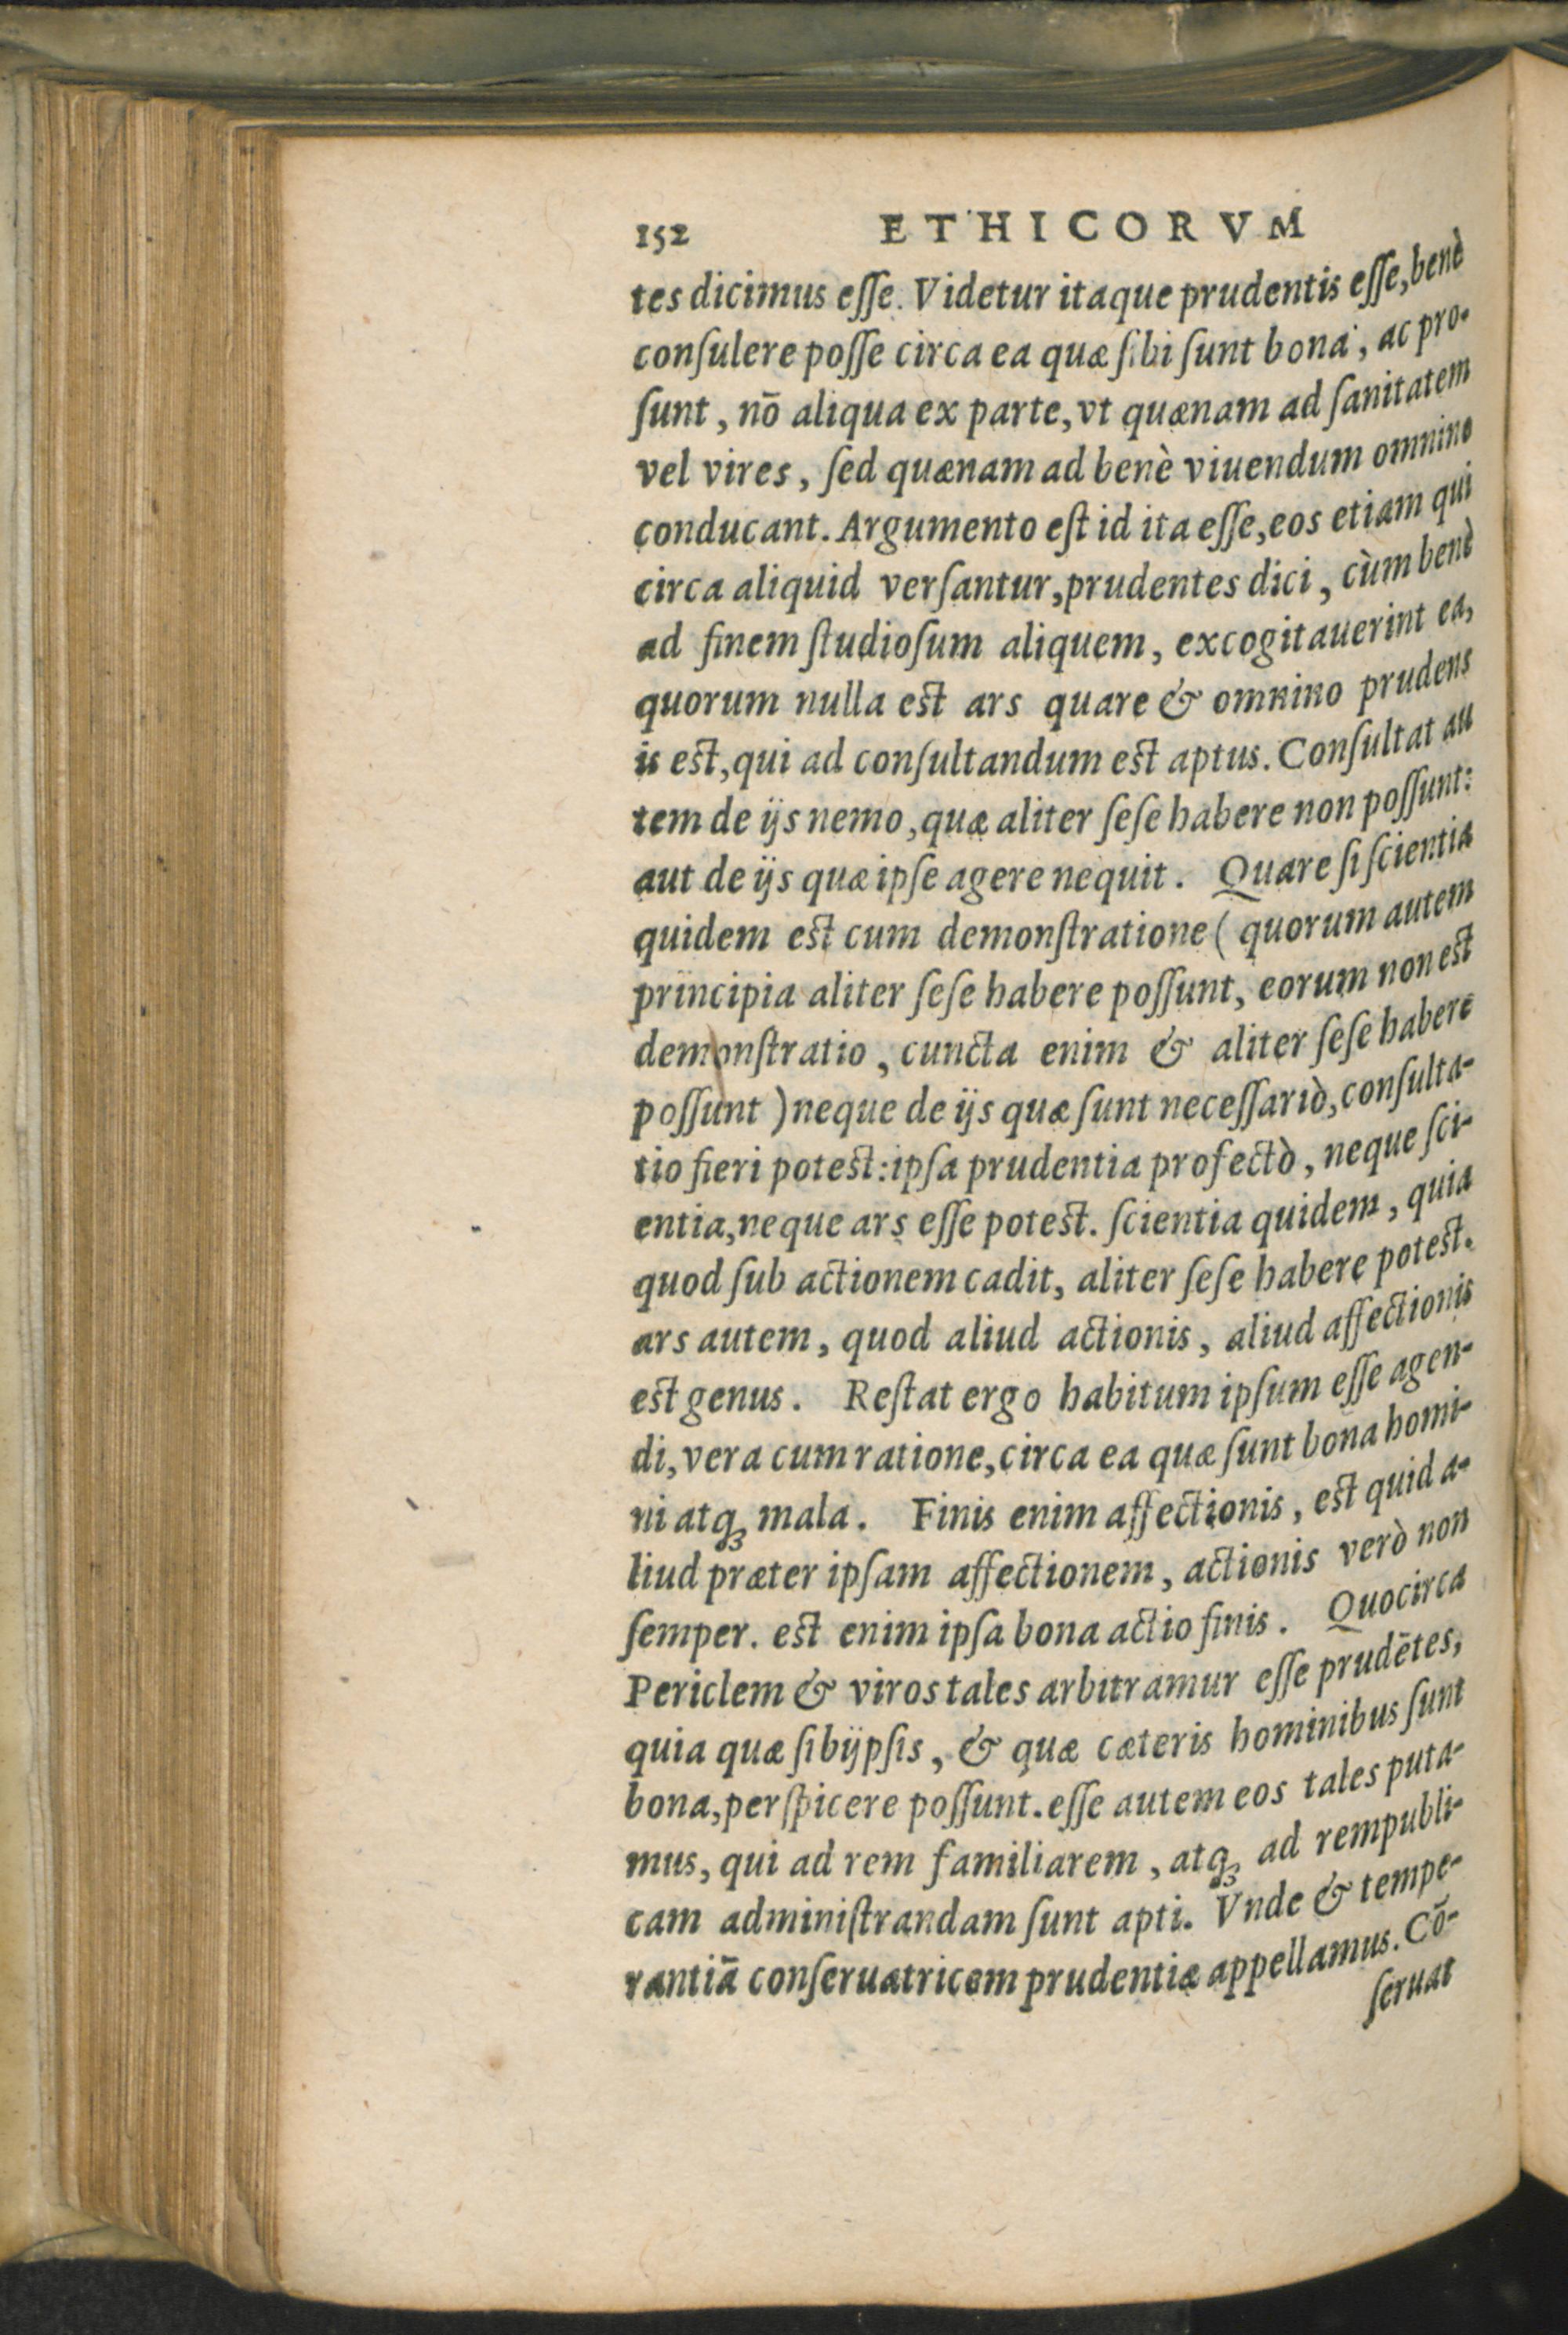 152 ETHICORVM
tes dicimus eſſe. Videtur itaque prudentis eſſe, benè
conſulere poſſe circa ea quæ ſibi ſunt bona, ac pro-
ſunt, nō aliqua ex parte, vt quænam ad ſanitatem
vel vires, ſed quænam ad benè viuendum omnino
conducant. Argumento eſt id ita eſſe, eos etiam qui
circa aliquid verſantur, prudentes dici, cùm benè
ad finem ſtudioſum aliquem, excogitauerint ea,
quorum nulla eſt ars quare & omnino prudens
is eſt, qui ad conſultandum eſt aptus. Conſultat au
tem de ijs nemo, quæ aliter ſeſe habere non poſſunt:
aut de ijs quæ ipſe agere nequit. Quare ſi ſcientia
quidem eſt cum demonſtratione ( quorum autem
principia aliter ſeſe habere poſſunt, eorum non eſt
demonſtratio, cuncta enim & aliter ſeſe habere
poſſunt ) neque de ijs quæ ſunt neceſſariò, conſulta-
tio fieri poteſt: ipſa prudentia profectò, neque ſci-
entia, neque ars eſſe poteſt. ſcientia quidem, quia
quod ſub actionem cadit, aliter ſeſe habere poteſt.
ars autem, quod aliud actionis, aliud affectionis
eſt genus. Reſtat ergo habitum ipſum eſſe agen-
di, vera cum ratione, circa ea quæ ſunt bona homi-
ni atq; mala. Finis enim affectionis, eſt quid a-
liud præter ipſam affectionem, actionis verò non
ſemper. eſt enim ipſa bona actio finis. Quocirca
Periclem & viros tales arbitramur eſſe prudētes,
quia quæ ſibijpſis, & quæ cæteris hominibus ſunt
bona, perſpicere poſſunt. eſſe autem eos tales puta-
mus, qui ad rem familiarem, atq; ad rempubli-
cam adminiſtrandam ſunt apti. Vnde & tempe-
rantiā conſeruatricem prudentiæ appellamus. Cō-
ſeruat